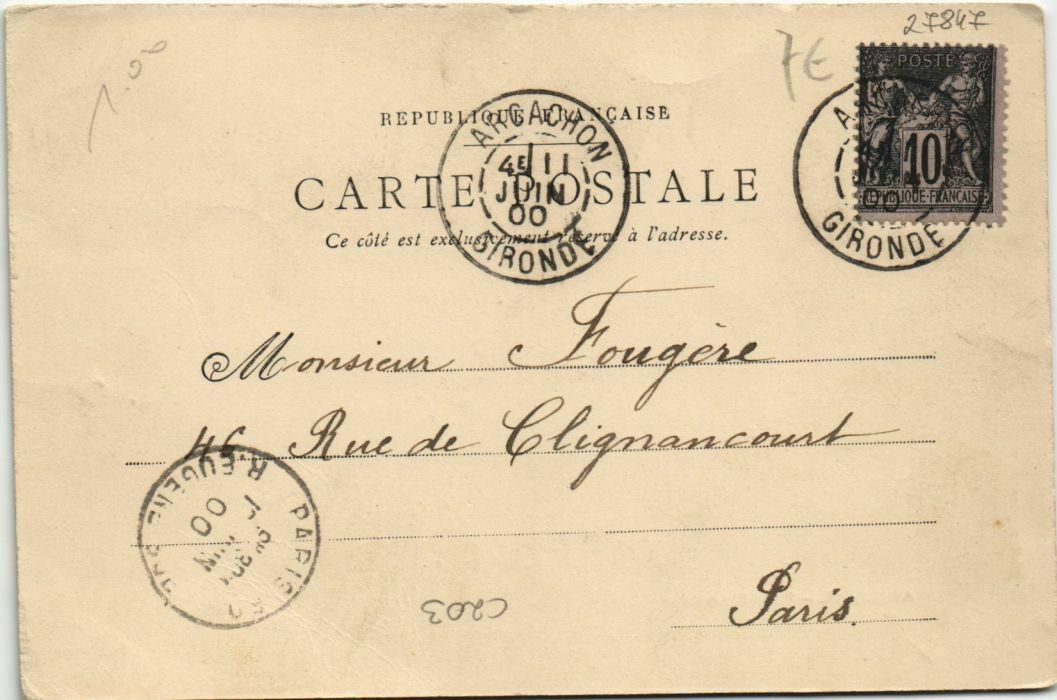 27847
1.00
7€
POSTE
10
REPUBLIQUE FRANÇAISE
REPUBLIQUE FRANÇAISE
ARCACHON
4E 11
JUIN
00
GIRONDE
00
GIRONDE
CARTE POSTALE
Ce côté est exclusivement réservé à l'adresse.
Monsieur Fougère
46 Rue de Clignancourt
Paris.
PARIS
R. EUGENE
00
C203